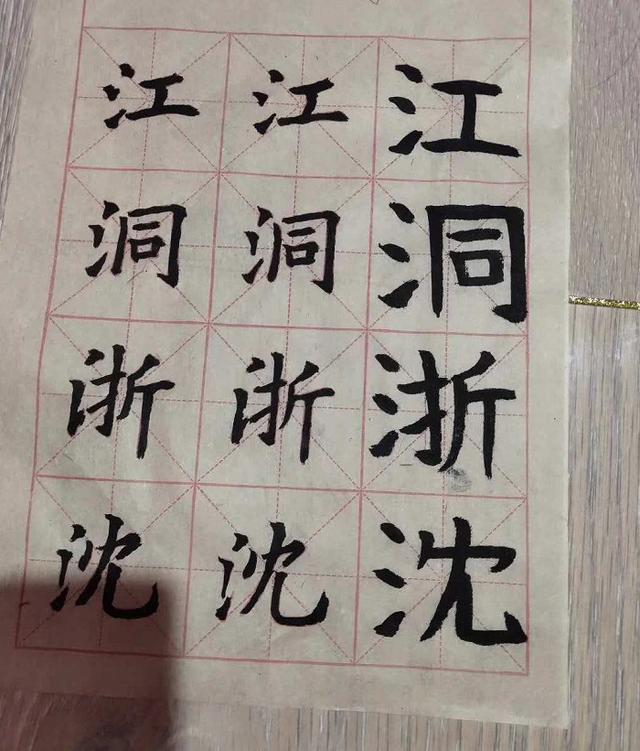 江 江 江
洞 洞 洞
浙 浙 浙
沈 沈 沈